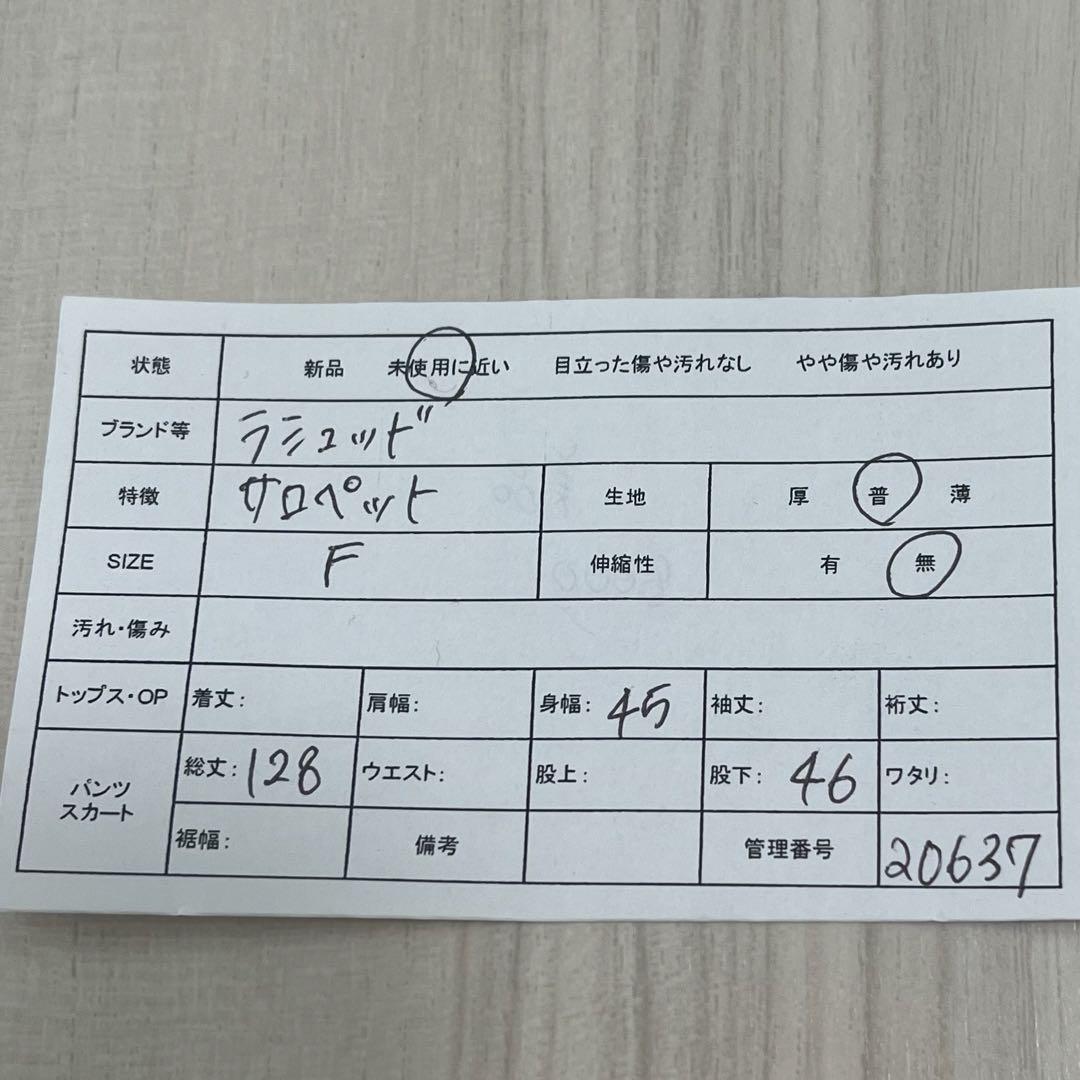 状態 新品 未使用に近い 目立った傷や汚れなし やや傷や汚れあり
ブランド等 ラミュッド
特徴 サロペット 生地 厚 普 薄
SIZE F 伸縮性 有 無
汚れ・傷み
トップス・OP 着丈: 肩幅: 身幅: 45 袖丈: 裄丈:
パンツ
スカート
総丈: 128 ウエスト: 股上: 股下: 46 ワタリ:
裾幅: 備考 管理番号 20637